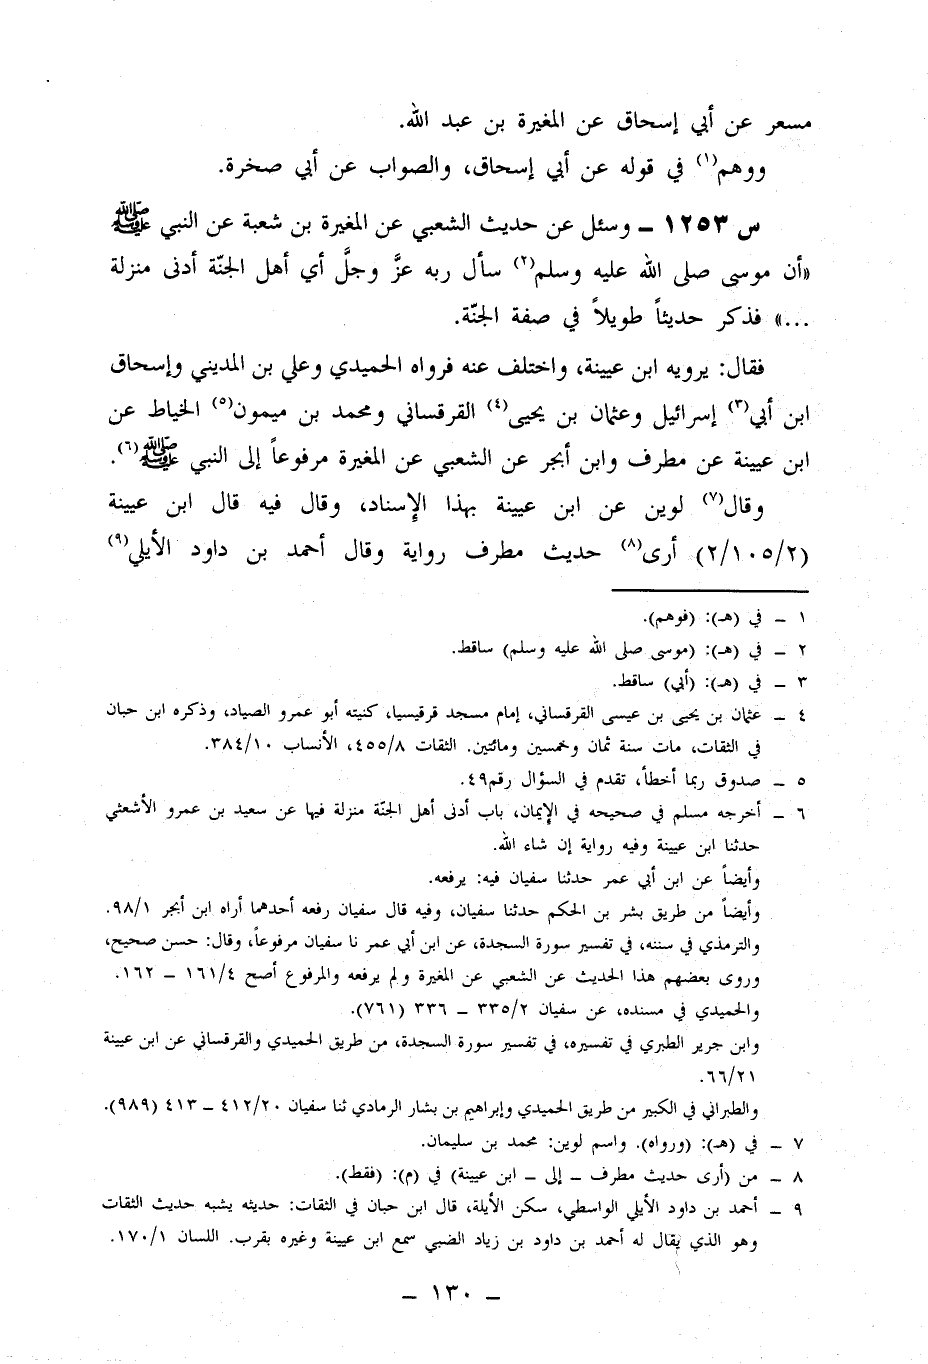 مسعر عن أبي إسحاق عن المغيرة بن عبد الله.
ووهم(١) في قوله عن أبي إسحاق، والصواب عن أبي صخرة.
س ١٢٥٣ ـ وسئل عن حديث الشعبي عن المغيرة بن شعبة عن النبي ﷺ
«أن موسى صلى الله عليه وسلم(٢) سأل ربه عزَّ وجلَّ أي أهل الجنّة أدنى منزلة
...» فذكر حديثاً طويلاً في صفة الجنّة.
فقال: يرويه ابن عيينة، واختلف عنه فرواه الحميدي وعلي بن المديني وإسحاق
ابن أبي(٣) إسرائيل وعثمان بن يحيى(٤) القرقساني ومحمد بن ميمون(٥) الخياط عن
ابن عيينة عن مطرف وابن أبجر عن الشعبي عن المغيرة مرفوعاً إلى النبي ﷺ(٦).
وقال(٧) لوين عن ابن عيينة بهذا الإسناد، وقال فيه قال ابن عيينة
(٢/١٠٥/٢) أرى(٨) حديث مطرف رواية وقال أحمد بن داود الأيلي(٩)
١ ـ في (هـ): (فوهم).
٢ ـ في (هـ): (موسى صلى الله عليه وسلم) ساقط.
٣ ـ في (هـ): (أبي) ساقط.
٤ ـ عثمان بن يحيى بن عيسى القرقساني، إمام مسجد قرقيسيا، كنيته أبو عمرو الصياد، وذكره ابن حبان
في الثقات، مات سنة ثمان وخمسين ومائتين. الثقات ٤٥٥/٨، الأنساب ٣٨٤/١٠.
٥ ـ صدوق ربما أخطأ، تقدم في السؤال رقم٤٩.
٦ ـ أخرجه مسلم في صحيحه في الإيمان، باب أدنى أهل الجنّة منزلة فيها عن سعيد بن عمرو الأشعثي
حدثنا ابن عيينة وفيه رواية إن شاء الله.
وأيضاً عن ابن أبي عمر حدثنا سفيان فيه: يرفعه.
وأيضاً من طريق بشر بن الحكم حدثنا سفيان، وفيه قال سفيان رفعه أحدهما أراه ابن أبجر ٩٨/١.
والترمذي في سننه، في تفسير سورة السجدة، عن ابن أبي عمر نا سفيان مرفوعاً، وقال: حسن صحيح،
وروى بعضهم هذا الحديث عن الشعبي عن المغيرة ولم يرفعه والمرفوع أصح ١٦١/٤ ـ ١٦٢.
والحميدي في مسنده، عن سفيان ٣٣٥/٢ ـ ٣٣٦ (٧٦١).
وابن جرير الطبري في تفسيره، في تفسير سورة السجدة، من طريق الحميدي والقرقساني عن ابن عيينة
٦٦/٢١.
والطبراني في الكبير من طريق الحميدي وإبراهيم بن بشار الرمادي ثنا سفيان ٤١٢/٢٠ ـ ٤١٣ (٩٨٩).
٧ ـ في (هـ): (ورواه). واسم لوين: محمد بن سليمان.
٨ ـ من (أرى حديث مطرف ـ إلى ـ ابن عيينة) في (م): (فقط).
٩ ـ أحمد بن داود الأيلي الواسطي، سكن الأيلة، قال ابن حبان في الثقات: حديثه يشبه حديث الثقات
وهو الذي يقال له أحمد بن داود بن زياد الضبي سمع ابن عيينة وغيره بقرب. اللسان ١٧٠/١.
ـ ١٣٠ ـ